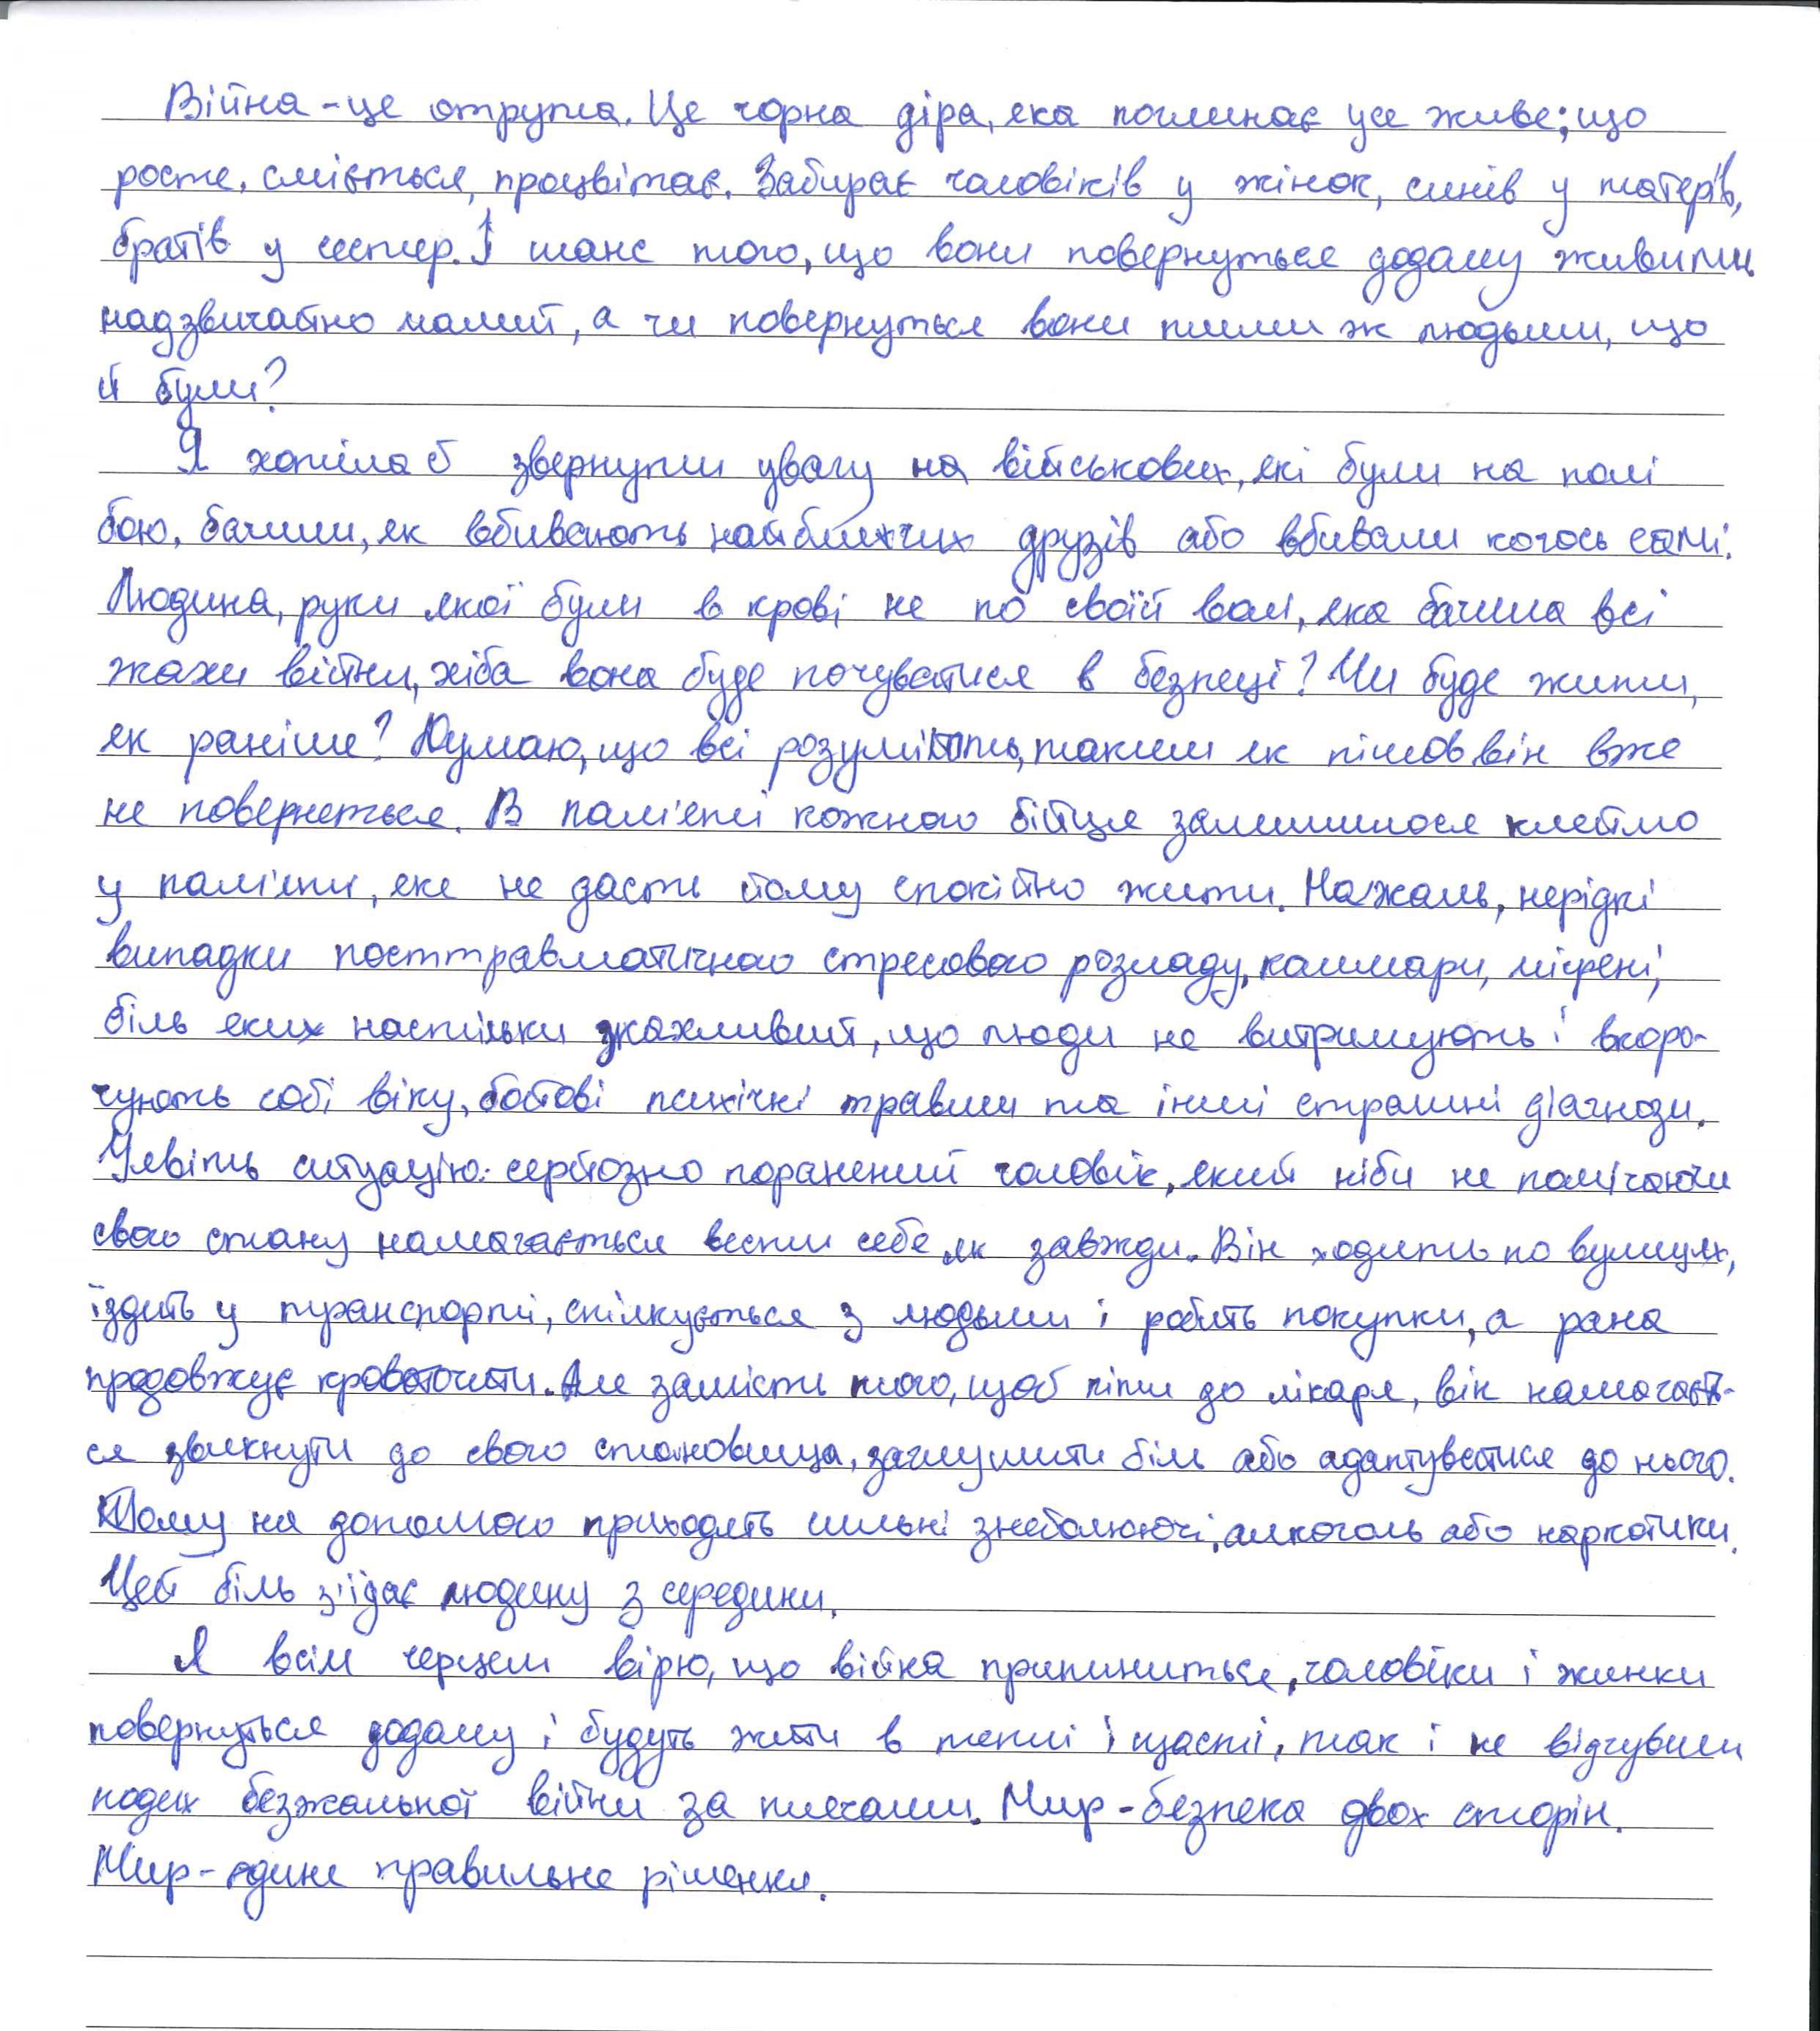 Війна - це отрута. Це чорна діра, яка поглинає усе живе; що
росте, сміється, процвітає. Забирає чоловіків у жінок, синів у матерів,
братів у сестер. І шанс того, що вони повернуться додому живими
надзвичайно малий, а чи повернуться вони тими ж людьми, що
й були?
Я хотіла б звернути увагу на військових, які були на полі
бою, бачили, як вбивають найближчих друзів або вбивали когось самі.
Людина, руки якої були в крові не по своїй волі, яка бачила всі
жахи війни, хіба вона буде почуватися в безпеці? Чи буде жити,
як раніше? Думаю, що всі розуміють, таким як пішов він вже
не повернеться. В пам'яті кожного бійця залишилося клеймо
у пам'яти, яке не дасть йому спокійно жити. На жаль, нерідкі
випадки посттравматичного стресового розладу, кошмари, мігрені,
біль яких настільки жахливий, що люди не витримують і вкоро-
чують собі віку, бойові психічні травми та інші страшні діагнози.
Уявіть ситуацію: серйозно поранений чоловік, який ніби не помічаючи
свого стану намагається вести себе як завжди. Він ходить по вулицях,
їздить у транспорті, спілкується з людьми і робить покупки, а рана
продовжує кровоточити. Але замість того, щоб піти до лікаря, він намагаєт-
ся звикнути до свого становища, заглушити біль або адаптуватися до нього.
Тому на допомого приходять сильні знеболюючі, алкоголь або наркотики.
Цей біль з'їдає людину з середини.
Я всім серцем вірю, що війна припиниться, чоловіки і жинки
повернуться додому і будуть жити в теплі і щасті, так і не відчувши
подих безжальної війни за плечами. Мир - безпека двох сторін.
Мир - єдине правильне рішення.